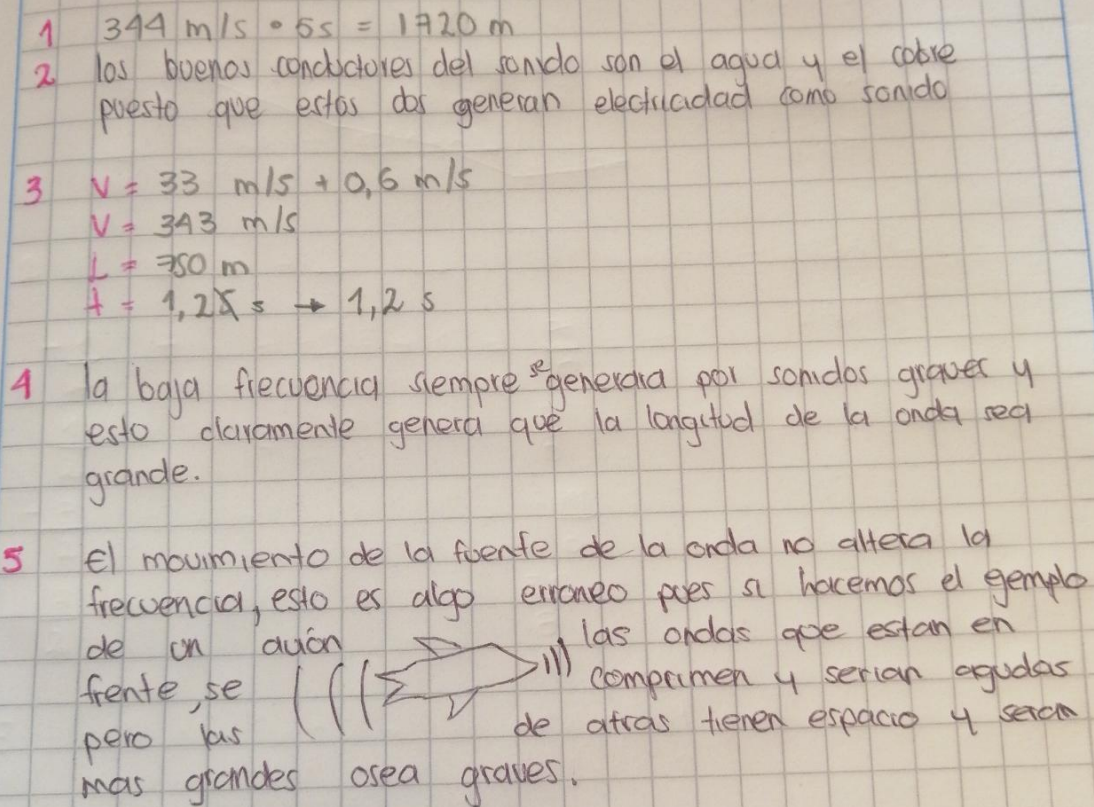 1 344 m/s • 5s = 1720 m
2 los buenos conductores del sonido son el agua y el cobre
puesto que estos dos generan electricidad como sonido
3 V = 33 m/s + 0,6 m/s
V = 343 m/s
L = 750 m
t = 1,25 s → 1,2 s
4 la baja frecuencia siempre se generara por sonidos graves y
esto claramente genera que la longitud de la onda sea
grande.
5 El movimiento de la fuente de la onda no altera la
frecuencia, esto es algo erroneo pues si hacemos el gemplo
de un avión las ondas que estan en
frente, se comprimen y serian agudas
pero las de atras tienen espacio y seran
mas grandes osea graves.